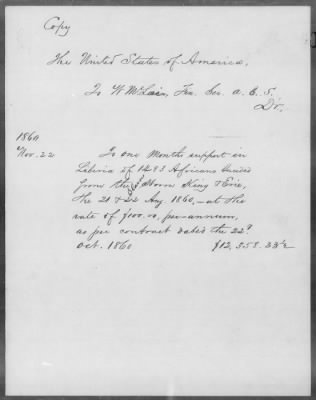 Copy
The United States of America,
To W McLain, Fin. Sec. A. C. S.
Dr.
1860
Nov. 22 To one Month support in
Liberia of 1483 Africans landed
from the Storm King & Erie,
the 21 & 22 Aug 1860, - at the
rate of $100.00, per annum,
as per contract dated the 22d
Oct. 1860 $12,358.33 1/3